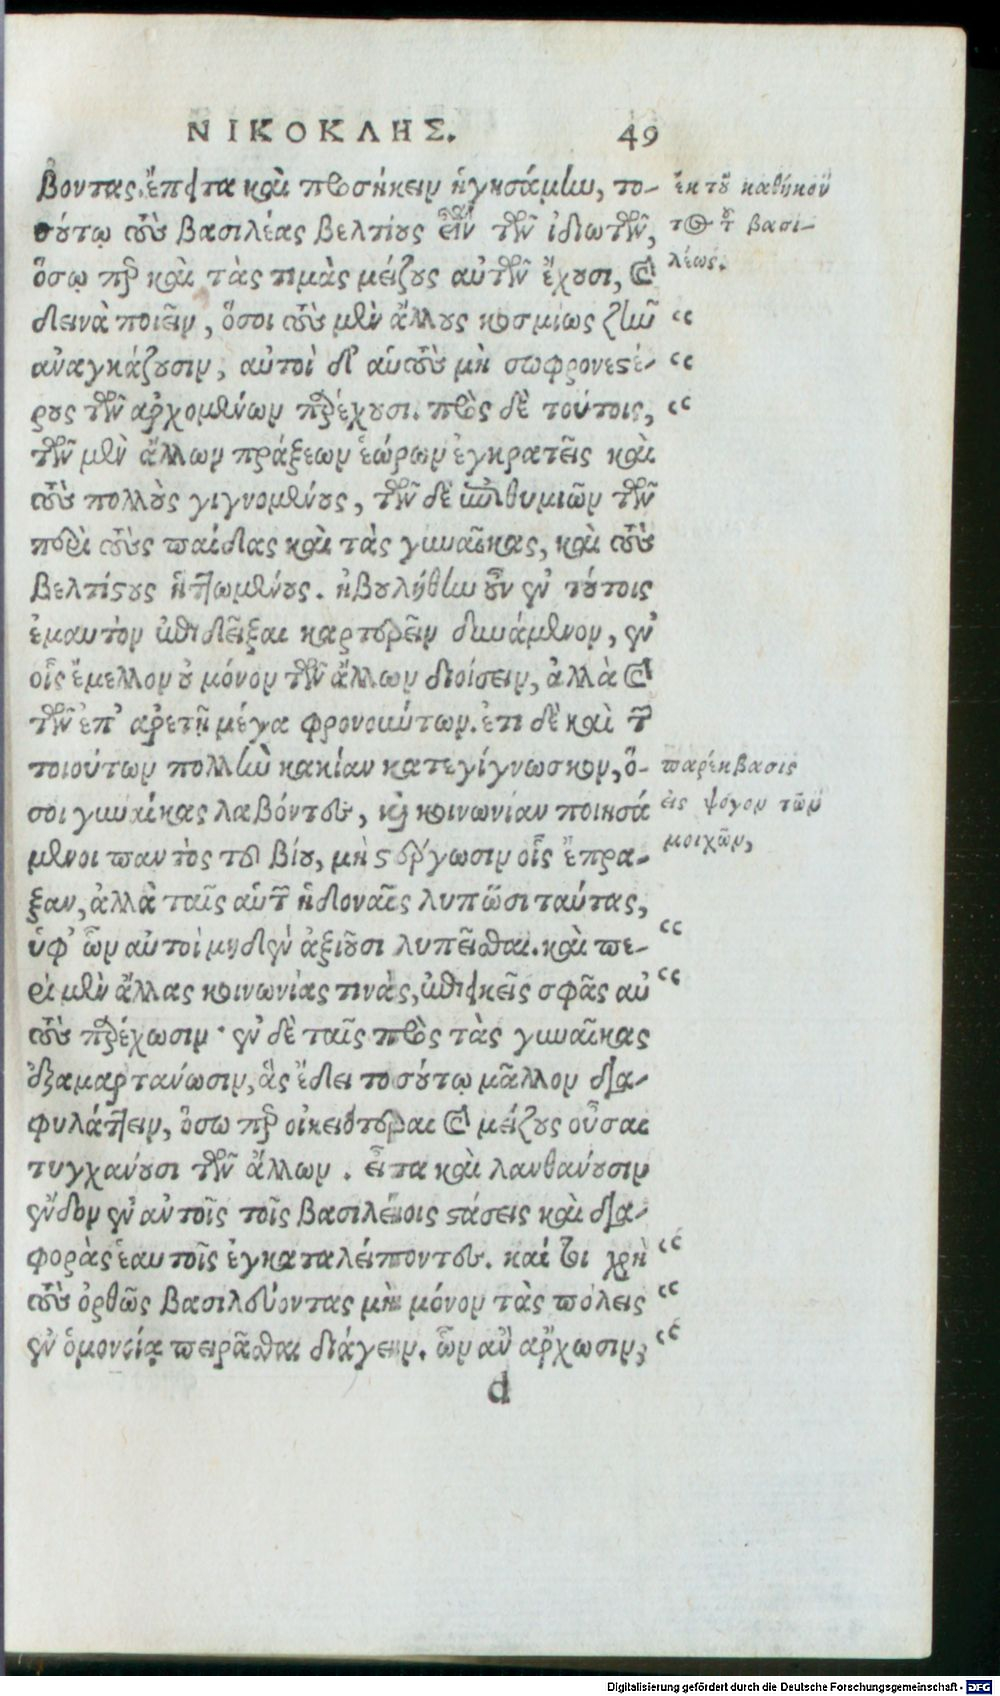 ΝΙΚΟΚΛΗΣ. 49
βοντας. ἔπειτα καὶ προσήκειν ἡγησάμην, το-
σούτῳ τοὺς βασιλέας βελτίους εἶναι τῶν ἰδιωτῶν,
ὅσῳ περ καὶ τὰς τιμὰς μείζους αὐτῶν ἔχουσι, καὶ
δεινὰ ποιεῖν, ὅσοι τοὺς μὲν ἄλλους κοσμίως ζῆν
ἀναγκάζουσιν, αὐτοὶ δ' αὑτοὺς μὴ σωφρονεστέ-
ρους τῶν ἀρχομένων παρέχουσι. πρὸς δὲ τούτοις,
τῶν μὲν ἄλλων πράξεων ἑώρων ἐγκρατεῖς καὶ
τοὺς πολλοὺς γιγνομένους, τῶν δὲ ἐπιθυμιῶν τῶν
περὶ τοὺς παίδας καὶ τὰς γυναῖκας, καὶ τοὺς
βελτίστους ἡττωμένους. ἠβουλήθην οὖν ἐν τούτοις
ἐμαυτὸν ἐπιδεῖξαι καρτερεῖν δυνάμενον, ἐν
οἷς ἔμελλον οὐ μόνον τῶν ἄλλων διοίσειν, ἀλλὰ καὶ
τῶν ἐπ' ἀρετῇ μέγα φρονούντων. ἔτι δὲ καὶ τῶν
τοιούτων πολλὴν κακίαν κατεγίγνωσκον, ὅ-
σοι γυναίκας λαβόντες, καὶ κοινωνίαν ποιησά
μενοι παντὸς τοῦ βίου, μὴ στέργωσιν οἷς ἔπρα-
ξαν, ἀλλὰ ταῖς αὑτῶν ἡδοναῖς λυπῶσι ταύτας,
ὑφ' ὧν αὐτοὶ μηδὲν ἀξιοῦσι λυπεῖσθαι. καὶ πε-
ρὶ μὲν ἄλλας κοινωνίας τινὰς, ἐπιεικεῖς σφᾶς αὐ
τοὺς παρέχωσιν· ἐν δὲ ταῖς πρὸς τὰς γυναῖκας
ἐξαμαρτανωσιν, ἃς ἔδει τοσούτῳ μᾶλλον δια-
φυλάττειν, ὅσω περ οἰκειότεραι καὶ μείζους οὖσαι
τυγχανουσι τῶν ἄλλων. εἶτα καὶ λανθανουσιν
ἔνδον ἐν αὐτοῖς τοῖς βασιλείοις στάσεις καὶ δια-
φορὰς ἑαυτοῖς ἐγκαταλείποντες. καί τοι χρὴ
τοὺς ὀρθῶς βασιλεύοντας μὴ μόνον τὰς πόλεις
ἐν ὁμονοίᾳ πειρᾶσθαι διάγειν. ὧν ἂν ἄρχωσιν,
d
ἐκ τοῦ καθήκον
τος τοῦ βασι-
λέως.
“
“
“
παρέκβασις
εἰς ψόγον τῶν
μοιχῶν,
“
“
“
“
“
Digitalisierung gefördert durch die Deutsche Forschungsgemeinschaft - DFG